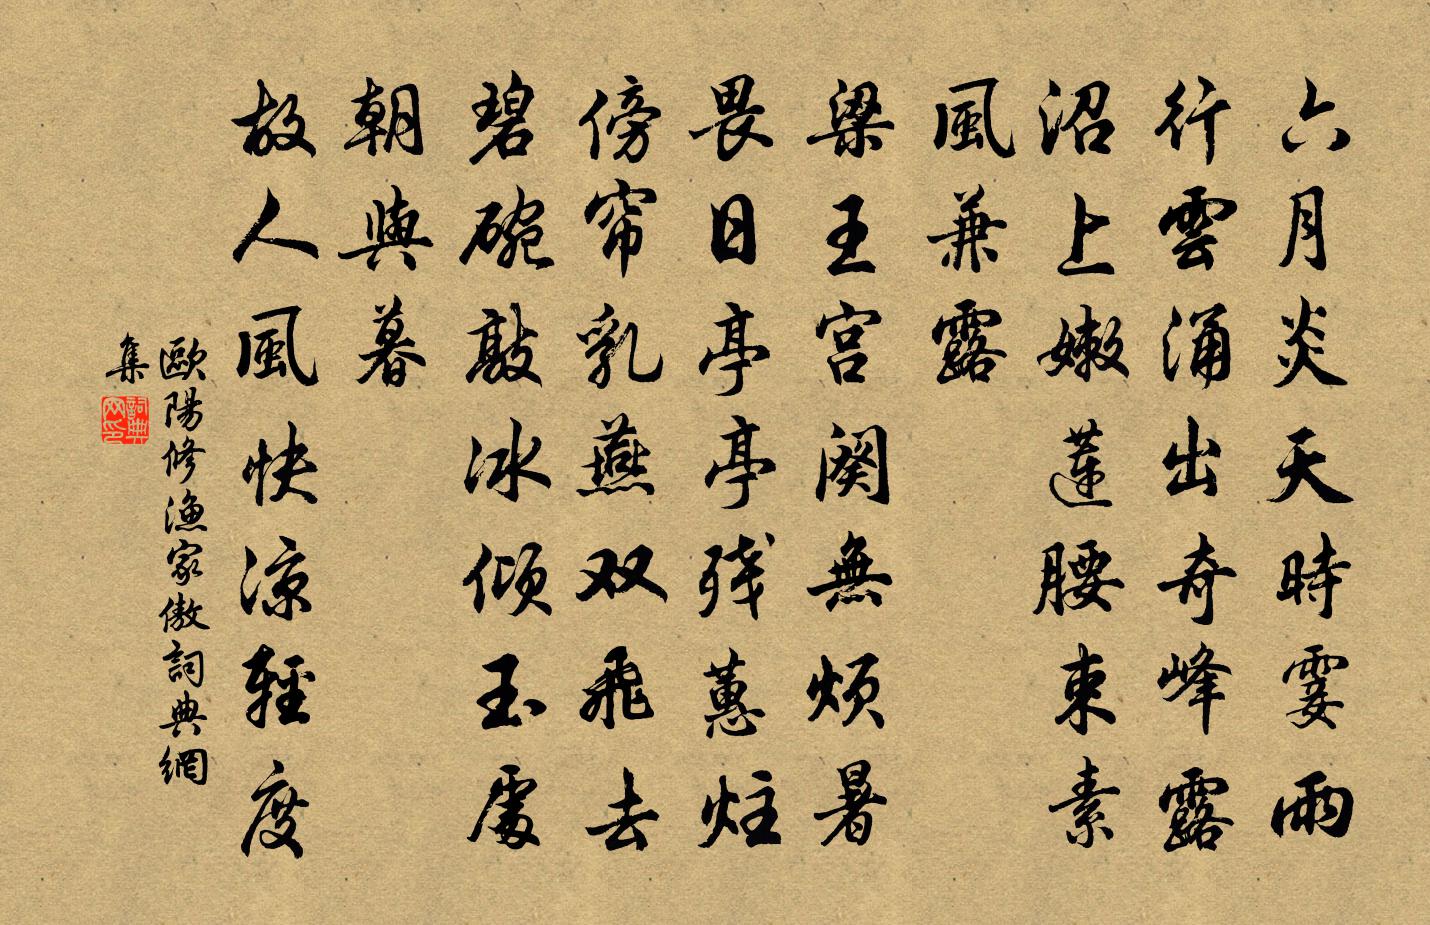 六月炎天時霎雨
行雲涌出奇峰露
沼上嫩蓮腰束素
風兼露
梁王宮闕無煩暑
畏日亭亭残蕙炷
傍帘乳燕双飛去
碧碗敲冰傾玉處
朝與暮
故人風快涼輕度
歐陽修漁家傲詞典網
集
詞典網印